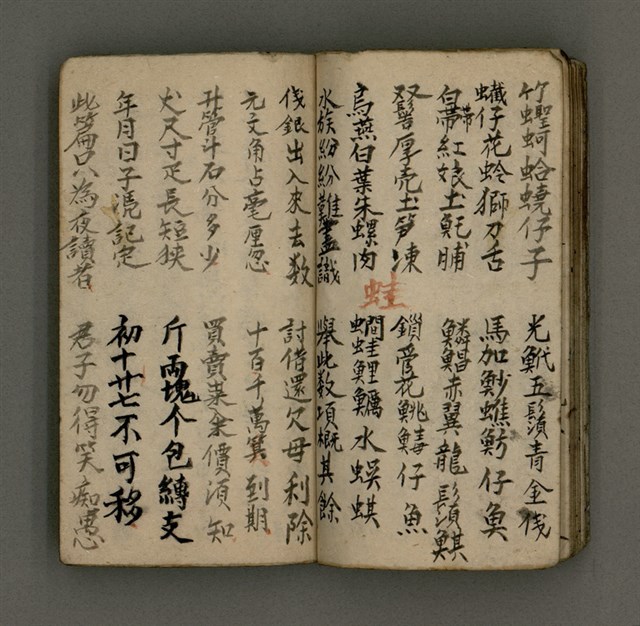 竹蟶蚵蛤蟯仔子 光魠五鬚青金伐
蠘仔花蛉獅刀舌 馬加魦䗁魴仔魚
白帶紅娘土魠脯 鱗鯧赤翼龍鬚
鬃厚壳土笋凍 鎖管花鮡仔魚
烏燕白葉朱螺肉 蛙鯉鱱水蜈蜞
蛙
水族紛紛難盡識 舉此数項概其餘
伐銀出入來去数 討借還欠母利除
元文角占毫厘忽 十百千萬算到期
升管斗石分多少 買賣粜籴價須知
丈尺寸疋長短狹 斤両塊个包縛支
年月日子凴記定 初十廿七不可移
此篇只為夜讀者 君子勿得笑痴愚